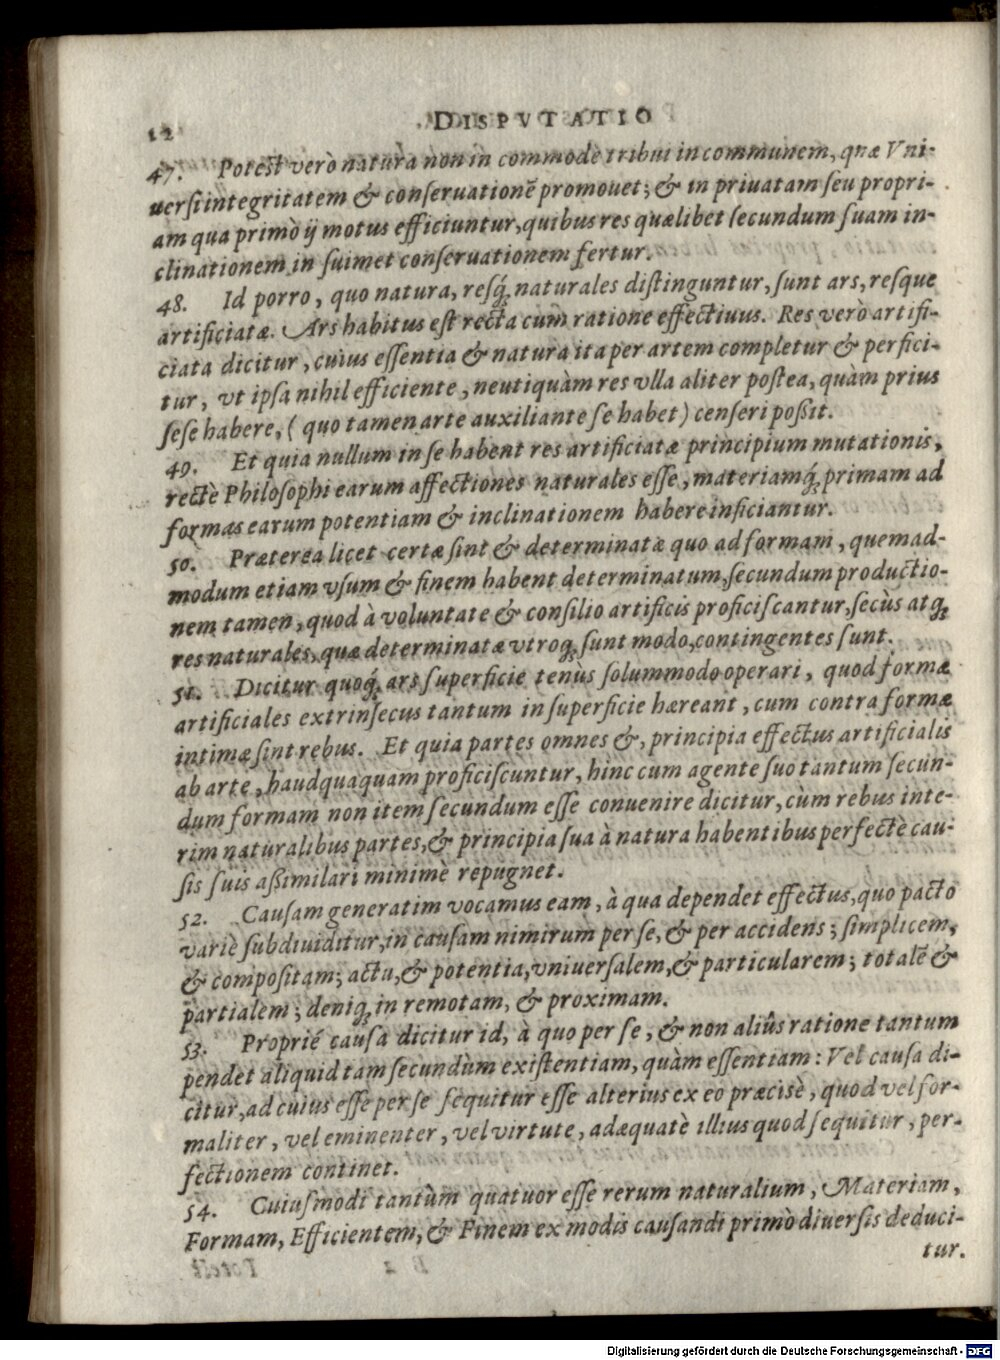 12 DISPVTATIO
47. Potest verò natura non in commodè tribui in communem, quæ Vni-
uersi integritatem & conseruationē promouet; & in priuatam seu propri-
am qua primò ij motus efficiuntur, quibus res quælibet secundum suam in-
clinationem in suimet conseruationem fertur.
48. Id porro, quo natura, resq́; naturales distinguntur, sunt ars, resque
artificiatæ. Ars habitus est recta cum ratione effectiuus. Res verò artifi-
ciata dicitur, cuius essentia & natura ita per artem completur & perfici-
tur, vt ipsa nihil efficiente, neutiquàm res vlla aliter postea, quàm prius
sese habere, ( quo tamen arte auxiliante se habet ) censeri poßit.
49. Et quia nullum in se habent res artificiatæ principium mutationis,
rectè Philosophi earum affectiones naturales esse, materiamq́; primam ad
formas earum potentiam & inclinationem habere inficiantur.
50. Præterea licet certæ sint & determinatæ quo ad formam, quemad-
modum etiam vsum & finem habent determinatum, secundum productio-
nem tamen, quod à voluntate & consilio artificis proficiscantur, secùs atq;
res naturales, quæ determinatæ vtroq; sunt modo, contingentes sunt.
51. Dicitur quoq́; ars superficie tenùs solummodo operari, quod formæ
artificiales extrinsecus tantum in superficie hæreant, cum contra formæ
intimæ sint rebus. Et quia partes omnes &, principia effectus artificialis
ab arte, haudquaquam proficiscuntur, hinc cum agente suo tantum secun-
dum formam non item secundum esse conuenire dicitur, cùm rebus inte-
rim naturalibus partes, & principia sua à natura habentibus perfectè cau-
sis suis aßimilari minimè repugnet.
52. Causam generatim vocamus eam, à qua dependet effectus, quo pacto
variè subdiuiditur, in causam nimirum per se, & per accidens; simplicem,
& compositam; actu, & potentia, vniuersalem, & particularem; totalē &
partialem; deniq; in remotam, & proximam.
53. Proprié causa dicitur id, à quo per se, & non aliûs ratione tantum
pendet aliquid tam secundùm existentiam, quàm essentiam: Vel causa di-
citur, ad cuius esse per se sequitur esse alterius ex eo præcisè, quod vel for-
maliter, vel eminenter, vel virtute, adæquatè illius quod sequitur, per-
fectionem continet.
54. Cuiusmodi tantùm quatuor esse rerum naturalium, Materiam,
Formam, Efficientem, & Finem ex modis causandi primò diuersis deduci-
tur.
Digitalisierung gefördert durch die Deutsche Forschungsgemeinschaft - DFG